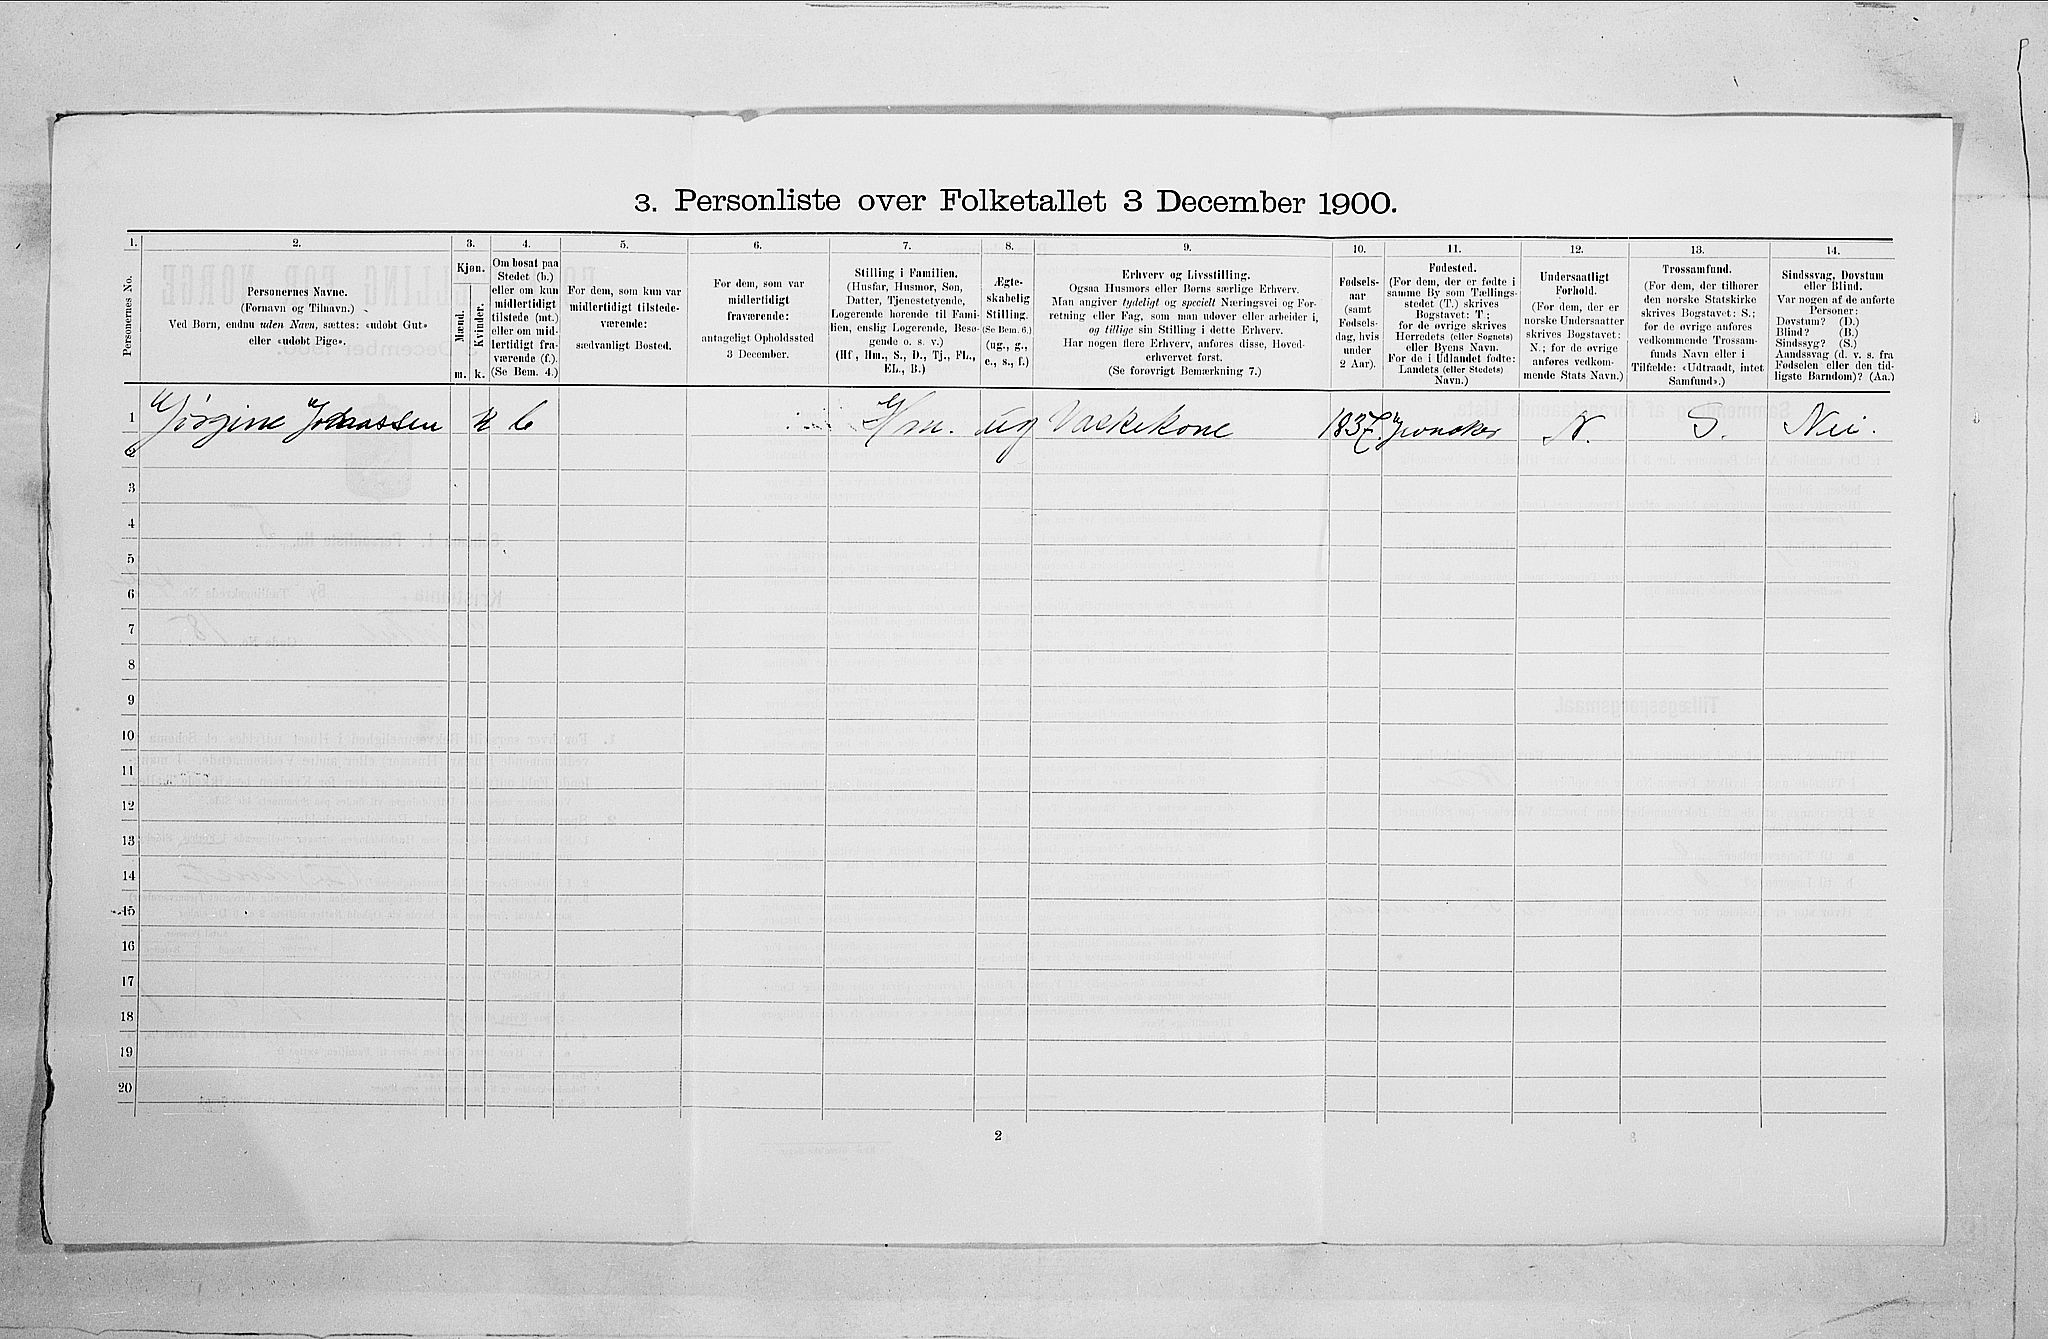 3. Personliste over Folketallet 3 December 1900.
1. 2. 3. 4. 5. 6. 7. 8. 9. 10. 11. 12. 13. 14.
Personernes No.
Personernes Navne.
(Fornavn og Tilnavn.)
Ved Børn, endnu uden Navn, sættes: «udøbt Gut»
eller «udøbt Pige».
Kjøn.
Mænd.
Kvinder.
m. k.
Om bosat paa
Stedet (b.)
eller om kun
midlertidigt
tilstede (mt.)
eller om mid-
lertidigt fra-
værende (f.).
(Se Bem. 4.)
For dem, som kun var
midlertidigt tilstede-
værende:
sædvanligt Bosted.
For dem, som var
midlertidigt
fraværende:
antageligt Opholdssted
3 December.
Stilling i Familien.
(Husfar, Husmor, Søn,
Datter, Tjenestetyende,
Logerende hørende til Fami-
lien, enslig Logerende, Besø-
gende o. s. v.)
(Hf., Hm., S., D., Tj., FL.,
EL., B.)
Ægte-
skabelig
Stilling.
(Se Bem. 6.)
(ug., g.,
e., s., f.)
Erhverv og Livsstilling.
Ogsaa Husmors eller Børns særlige Erhverv.
Man angiver tydeligt og specielt Næringsvei og For-
retning eller Fag, som man udøver eller arbeider i,
og tillige sin Stilling i dette Erhverv.
Har nogen flere Erhverv, anføres disse, Hoved-
erhvervet først.
(Se forøvrigt Bemærkning 7.)
Fødsels-
aar
(samt
Fødsels-
dag, hvis
under
2 Aar).
Fødested.
(For dem, der er fødte i
samme By som Tællings-
stedet (T.) skrives
Bogstavet: T.;
for de øvrige skrives
Herredets (eller Sognets)
eller Byens Navn.
For de i Udlandet fødte:
Landets (eller Stedets)
Navn.)
Undersaatligt
Forhold.
(For dem, der er
norske Undersaatter
skrives Bogstavet:
N.; for de øvrige
anføres vedkom-
mende Stats Navn.)
Trossamfund.
(For dem, der tilhører
den norske Statskirke
skrives Bogstavet: S.;
for de øvrige anføres
vedkommende Trossam-
funds Navn eller i
Tilfælde: «Udtraadt, intet
Samfund».)
Sindssvag, Døvstum
eller Blind.
Var nogen af de anførte
Personer:
Døvstum? (D.)
Blind? (B.)
Sindssyg? (S.)
Aandssvag (d. v. s. fra
Fødselen eller den tid-
ligste Barndom)? (Aa.)
1 Jörgine Johnassen k b Hm. ug Vaskekone 1837. N. S. Nei.
2
3
4
5
6
7
8
9
10
11
12
13
14
15
16
17
18
19
20
2